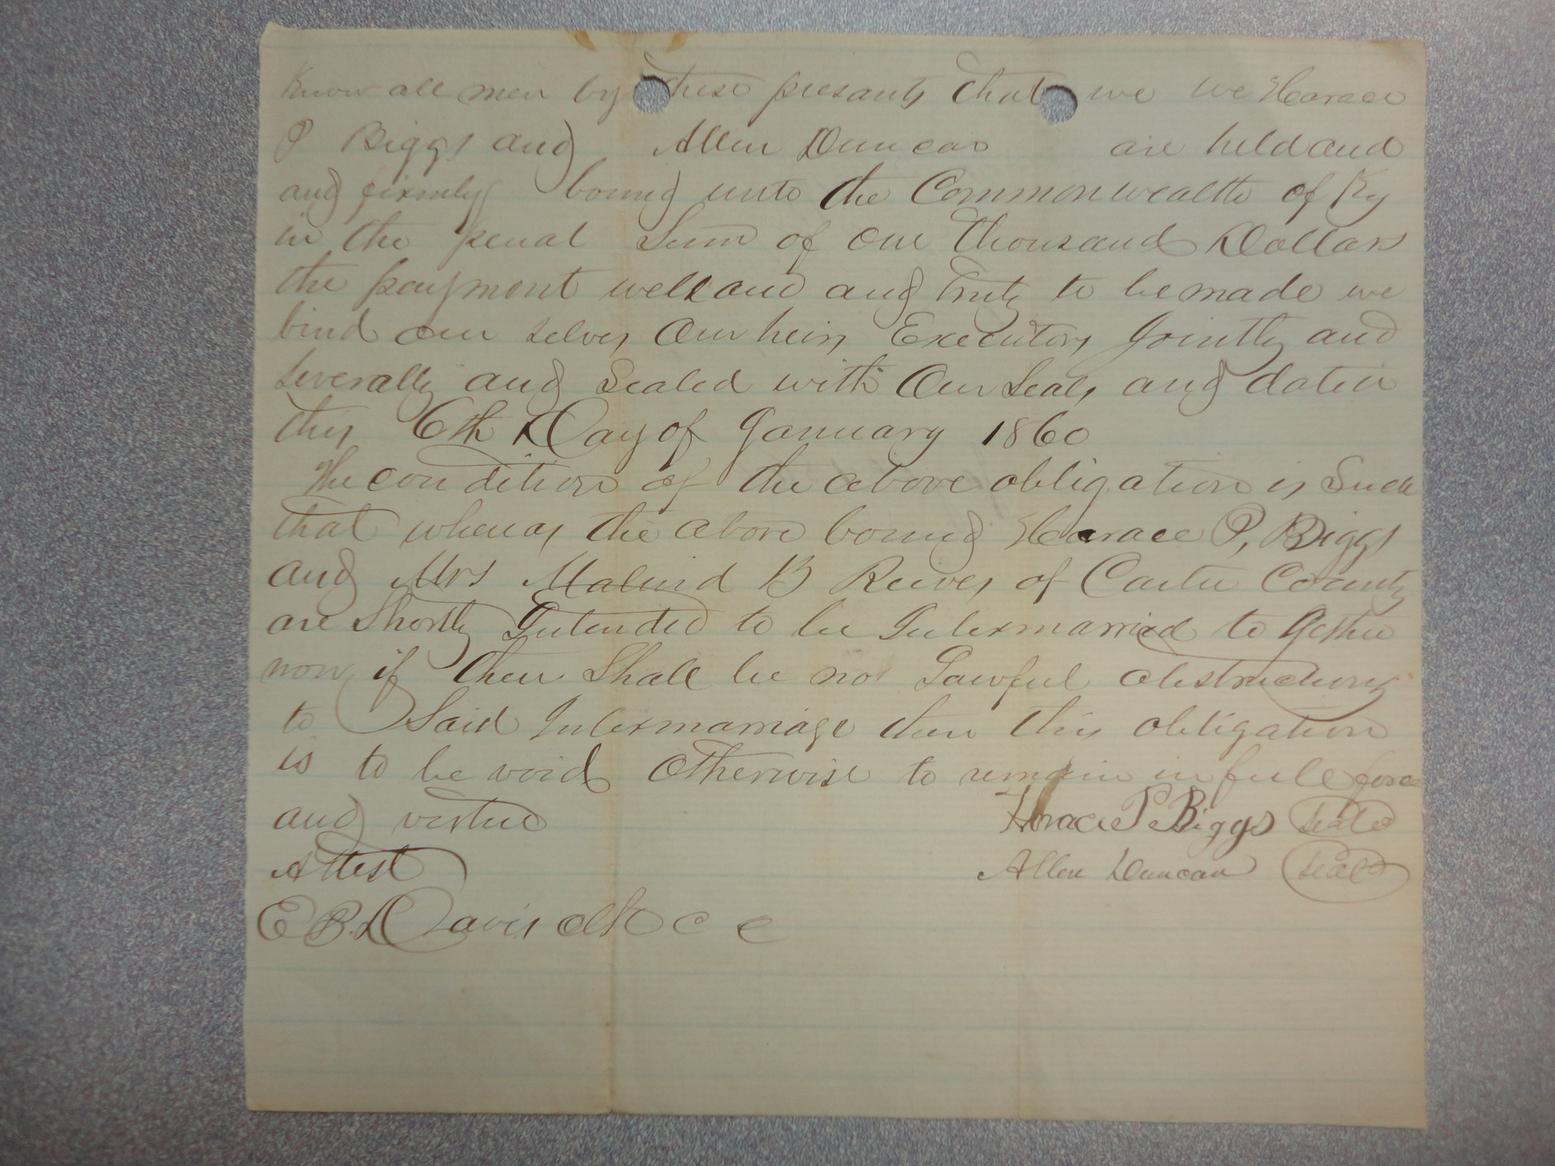 Know all men by these presants that we we Horace
P Biggs and Allen Duncan are held and
and firmly bound unto the Commonwealth of Ky
in the penal Sum of One Thousand Dollars
the payment well and and truly to be made we
bind our selves Our heirs Executors Jointly and
Severally and Sealed with Our Seals and dated
this 6th Day of January 1860
The condition of the above obligation is Such
that whereas the above bound Horace P, Biggs
and Mrs Malind B Reives of Carter County
are Shortly Intended to be Intermarried to gether
now if there Shall be no Lawful obstructions
to Said Intermarriage then this obligation
is to be void Otherwise to remain in full force
and virtue Horace P Biggs seal
Attest Allen Duncan seal
E B. Davis clk C C